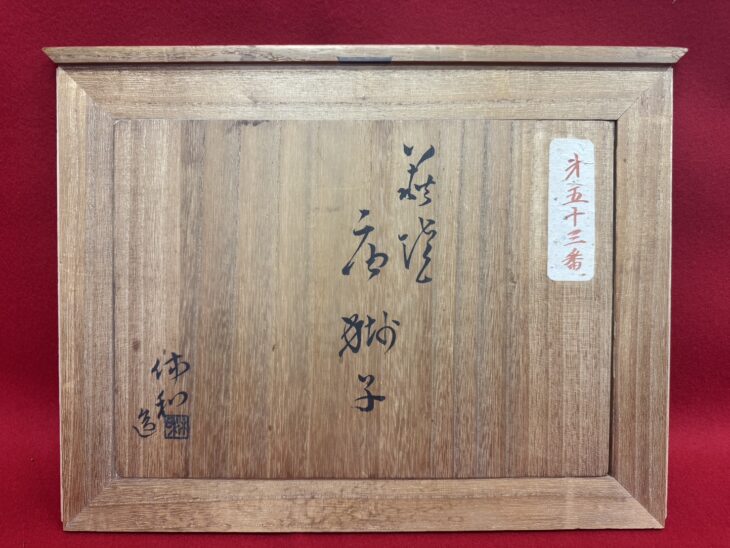 第五十三番
萩
唐獅子
休和造